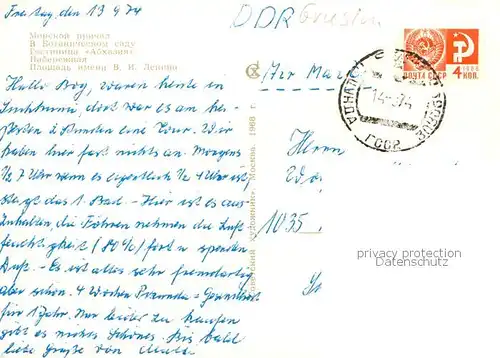 Freitag, den 13 9 74
DDR Grusin
Морской причал
В Ботаническом саду
Гостиница «Абхазия»
Набережная
Площадь имени В. И. Ленина
Air Mail
ПОЧТА СССР 4 КОП.
1966
ГССР
Hallo Bog, waren heute in
Suchumi, dort war es am hei-
ßesten 2 Stunden eine Tour. Wir
haben hier fast nichts an. Morgens
½ 7 Uhr wenn es eigentlich ½ 4 Uhr ist
steigt das 1. Bad. – Hier ist es aus-
zuhalten, die Föhren nehmen die Luft
feuchtigkeit (80%) fort u. spenden
Duft. – Es ist alles sehr fremdartig
aber schön. 4 Wochen Pizunda = Gesundheit
für 1 Jahr. Nur leider zu kaufen
gibt es nichts Schönes. Bis bald
liebe Grüße von
Советский художник. Москва. 1968 г.
Herrn
1035
privacy protection
Datenschutz